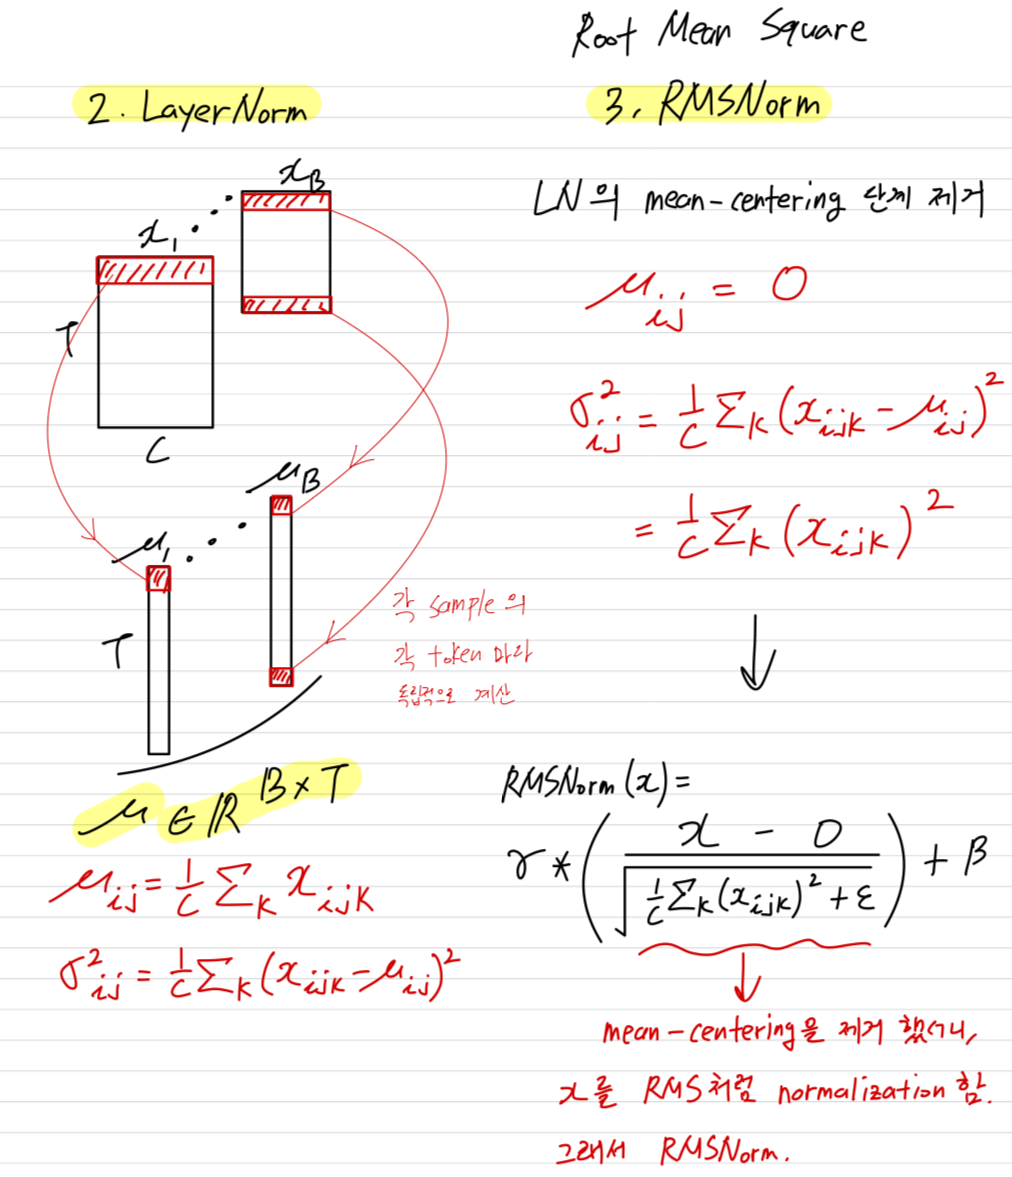 Root Mean Square
2. LayerNorm
x_1 ... x_B
T
C
μ_1 ... μ_B
T
각 sample의
각 token 마다
독립적으로 계산
μ ∈ ℝ^{B×T}
μ_{ij} = 1/C Σ_k x_{ijk}
σ²_{ij} = 1/C Σ_k (x_{ijk} - μ_{ij})²
3. RMSNorm
LN의 mean-centering 단계 제거
μ_{ij} = 0
σ²_{ij} = 1/C Σ_k (x_{ijk} - μ_{ij})²
= 1/C Σ_k (x_{ijk})²
RMSNorm(x) =
γ * ( (x - 0) / √(1/C Σ_k (x_{ijk})² + ε) ) + β
mean-centering을 제거 했더니,
x를 RMS처럼 normalization 함.
그래서 RMSNorm.